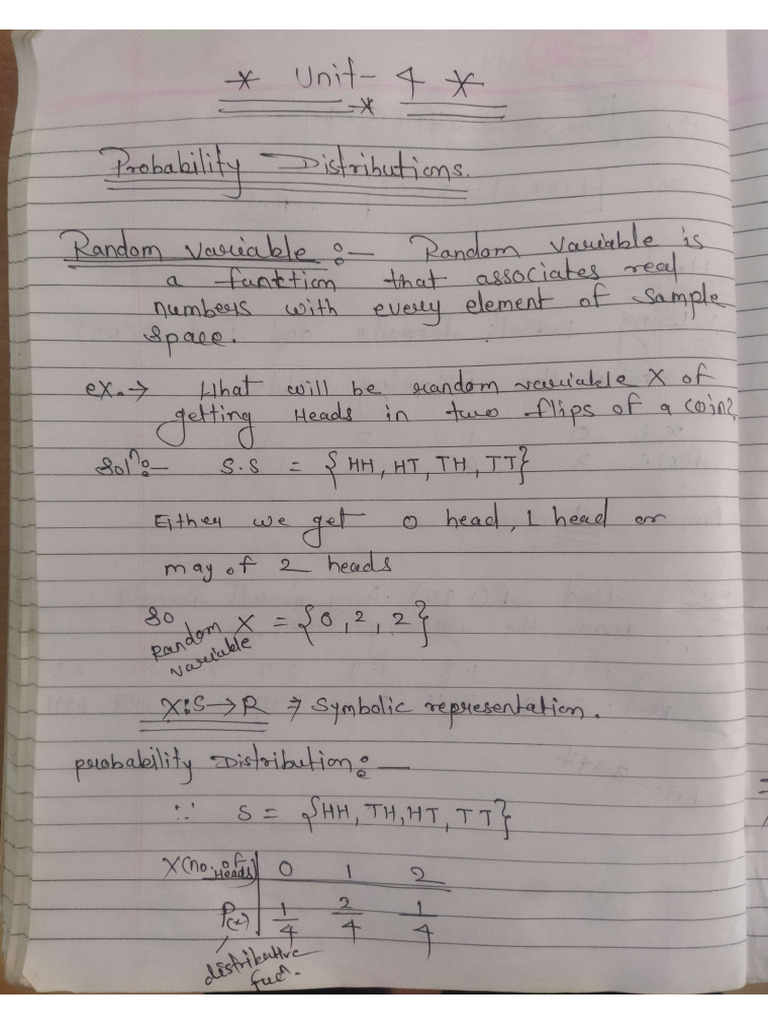 * Unit - 4 *
*
Probability Distributions.
Random variable :- Random variable is
a funktion that associates real
numbers with every element of sample
space.
ex.→ What will be random variable X of
getting Heads in two flips of a coin?
Solⁿ:- S.S = {HH, HT, TH, TT}
Either we get 0 head, 1 head or
may of 2 heads
So Random variable X = {0, 2, 2}
X:S→R ⇒ Symbolic representation.
probability Distribution:-
∵ S = {HH, TH, HT, TT}
X(no. of Heads) 0 1 2
P(x) 1/4 2/4 1/4
distributive
fucⁿ.